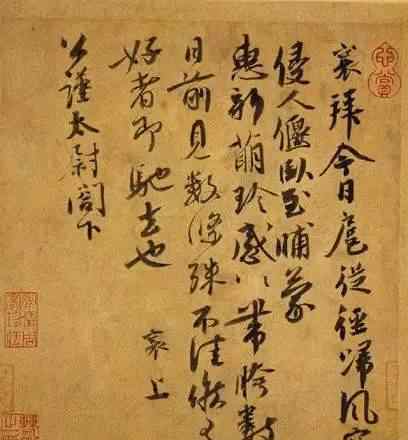 襄拜今日扈從徑歸風寒
侵人偃臥至晡蒙
惠新萌珍感以帶胯數
日前見數條殊不佳候有
好者即馳去也
襄上
公謹太尉閤下